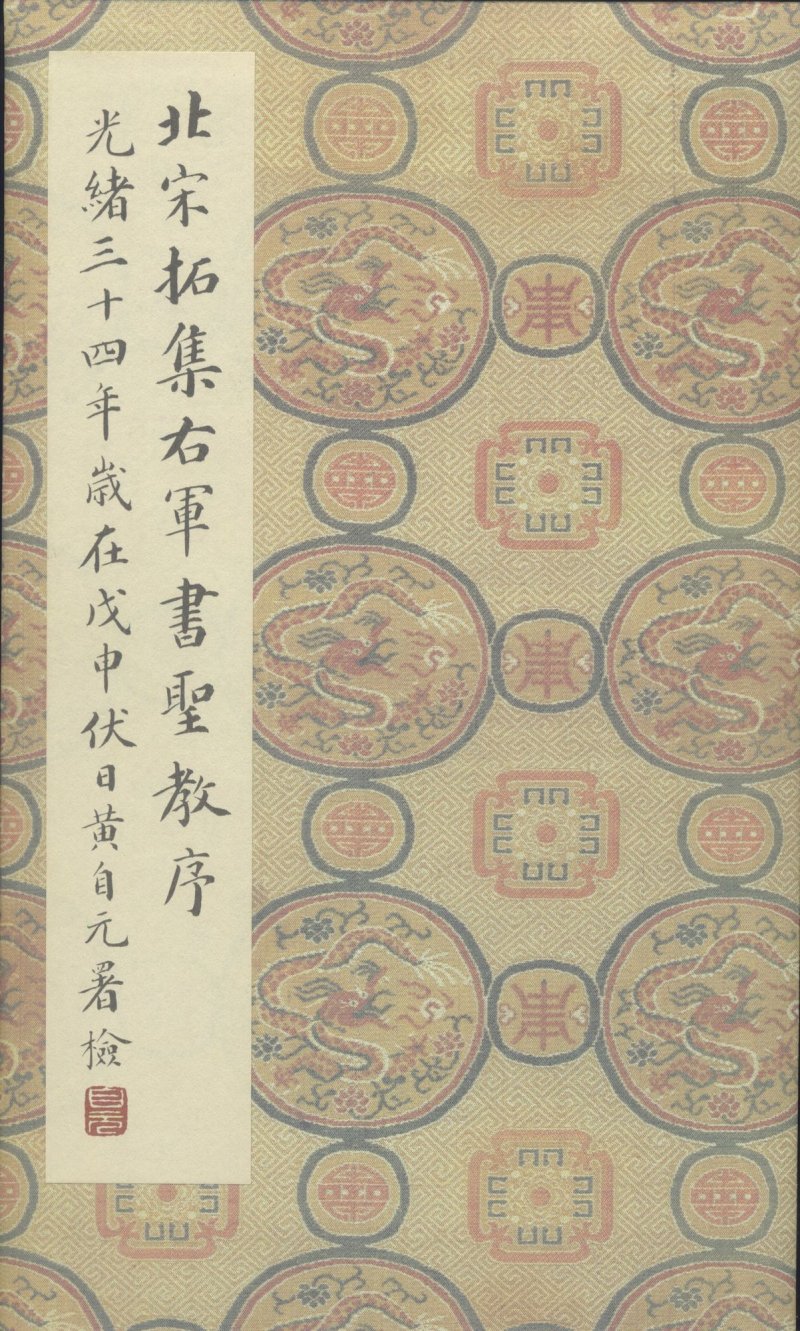 北宋拓集右軍書聖教序
光緒三十四年歲在戊申伏日黄自元署檢
自元